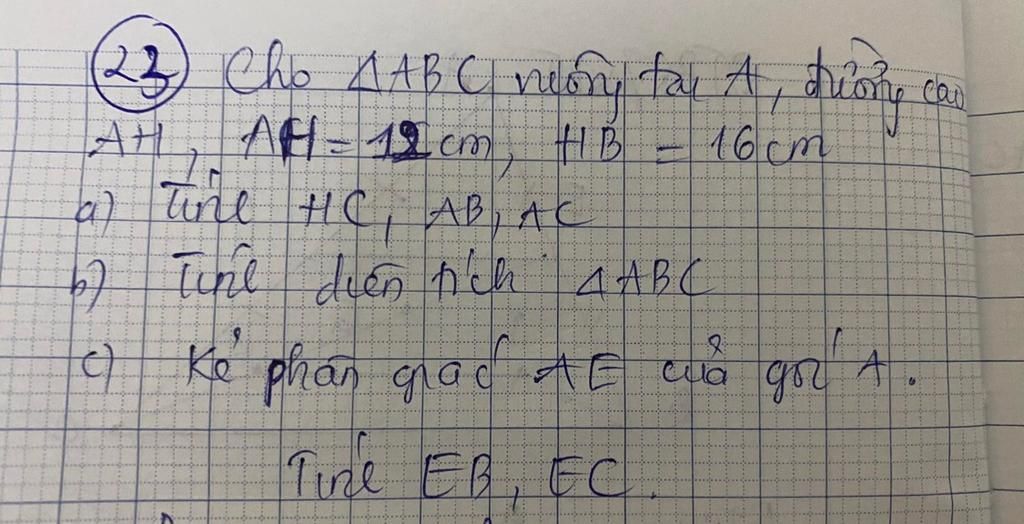 23 Cho ΔABC vuông tại A, đường cao
AH, AH = 12 cm, HB = 16 cm
a) Tính HC, AB, AC
b) Tính diện tích ΔABC
c) Kẻ phân giác AE của góc A.
Tính EB, EC.